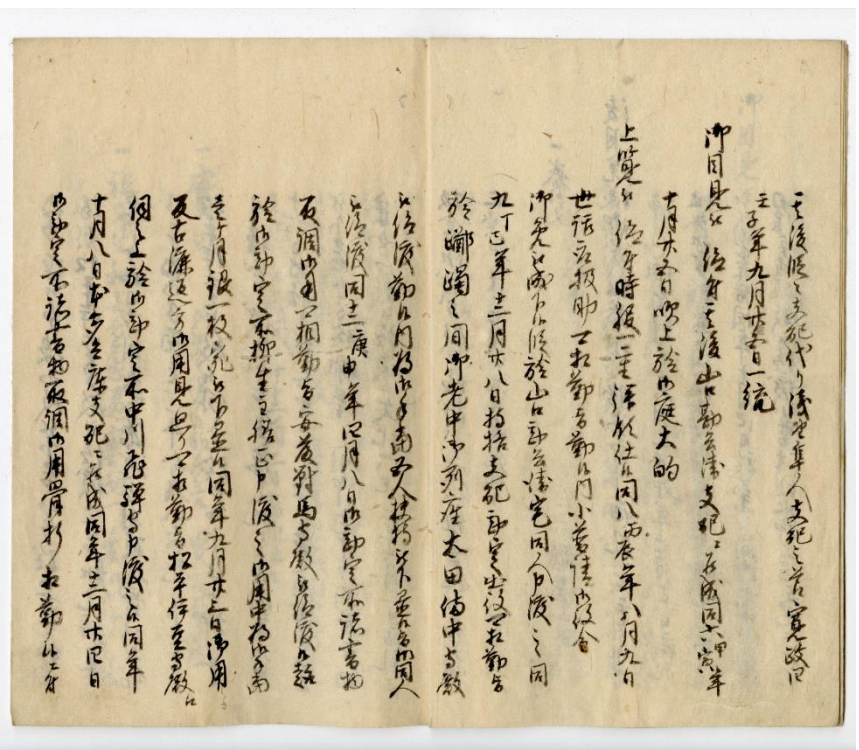 其後脇〻支配代り浅野隼人支配之節寛政四
壬子年九月廿五日一統
御目見被 仰付其後山口勘兵衛支配ニ相成同六甲寅年
十月廿五日吹上於御庭大的
上覧被 仰付時服一重頂戴仕候同八丙辰年八月九日
世話役扱助可相勤旨勤候内小普請御役金
御免被成下候段於山口勘兵衛宅同人申渡之同
九丁巳年十二月廿八日持格支配勘定出役可相勤旨
於躑躅之間御老中御列座太田備中守殿
被仰渡勤候内為御手当五人扶持被下置候旨同人
被仰渡同十二庚申年四月八日御勘定所諸書物
取調御用可相勤旨安藤対馬守殿被仰渡候趣
於御勘定所柳生主膳正申渡之御用中為御手当
壱ヶ月銀一枚宛被下置候同年九月廿三日御用
反古藤通方御用見廻り可相勤旨松平伊豆守殿被
仰之上於御勘定所中川飛騨守申渡之候同年
十月八日支配ニ相成同年十二月廿四日
御勘定所諸書物取調御用骨折相勤候ニ付